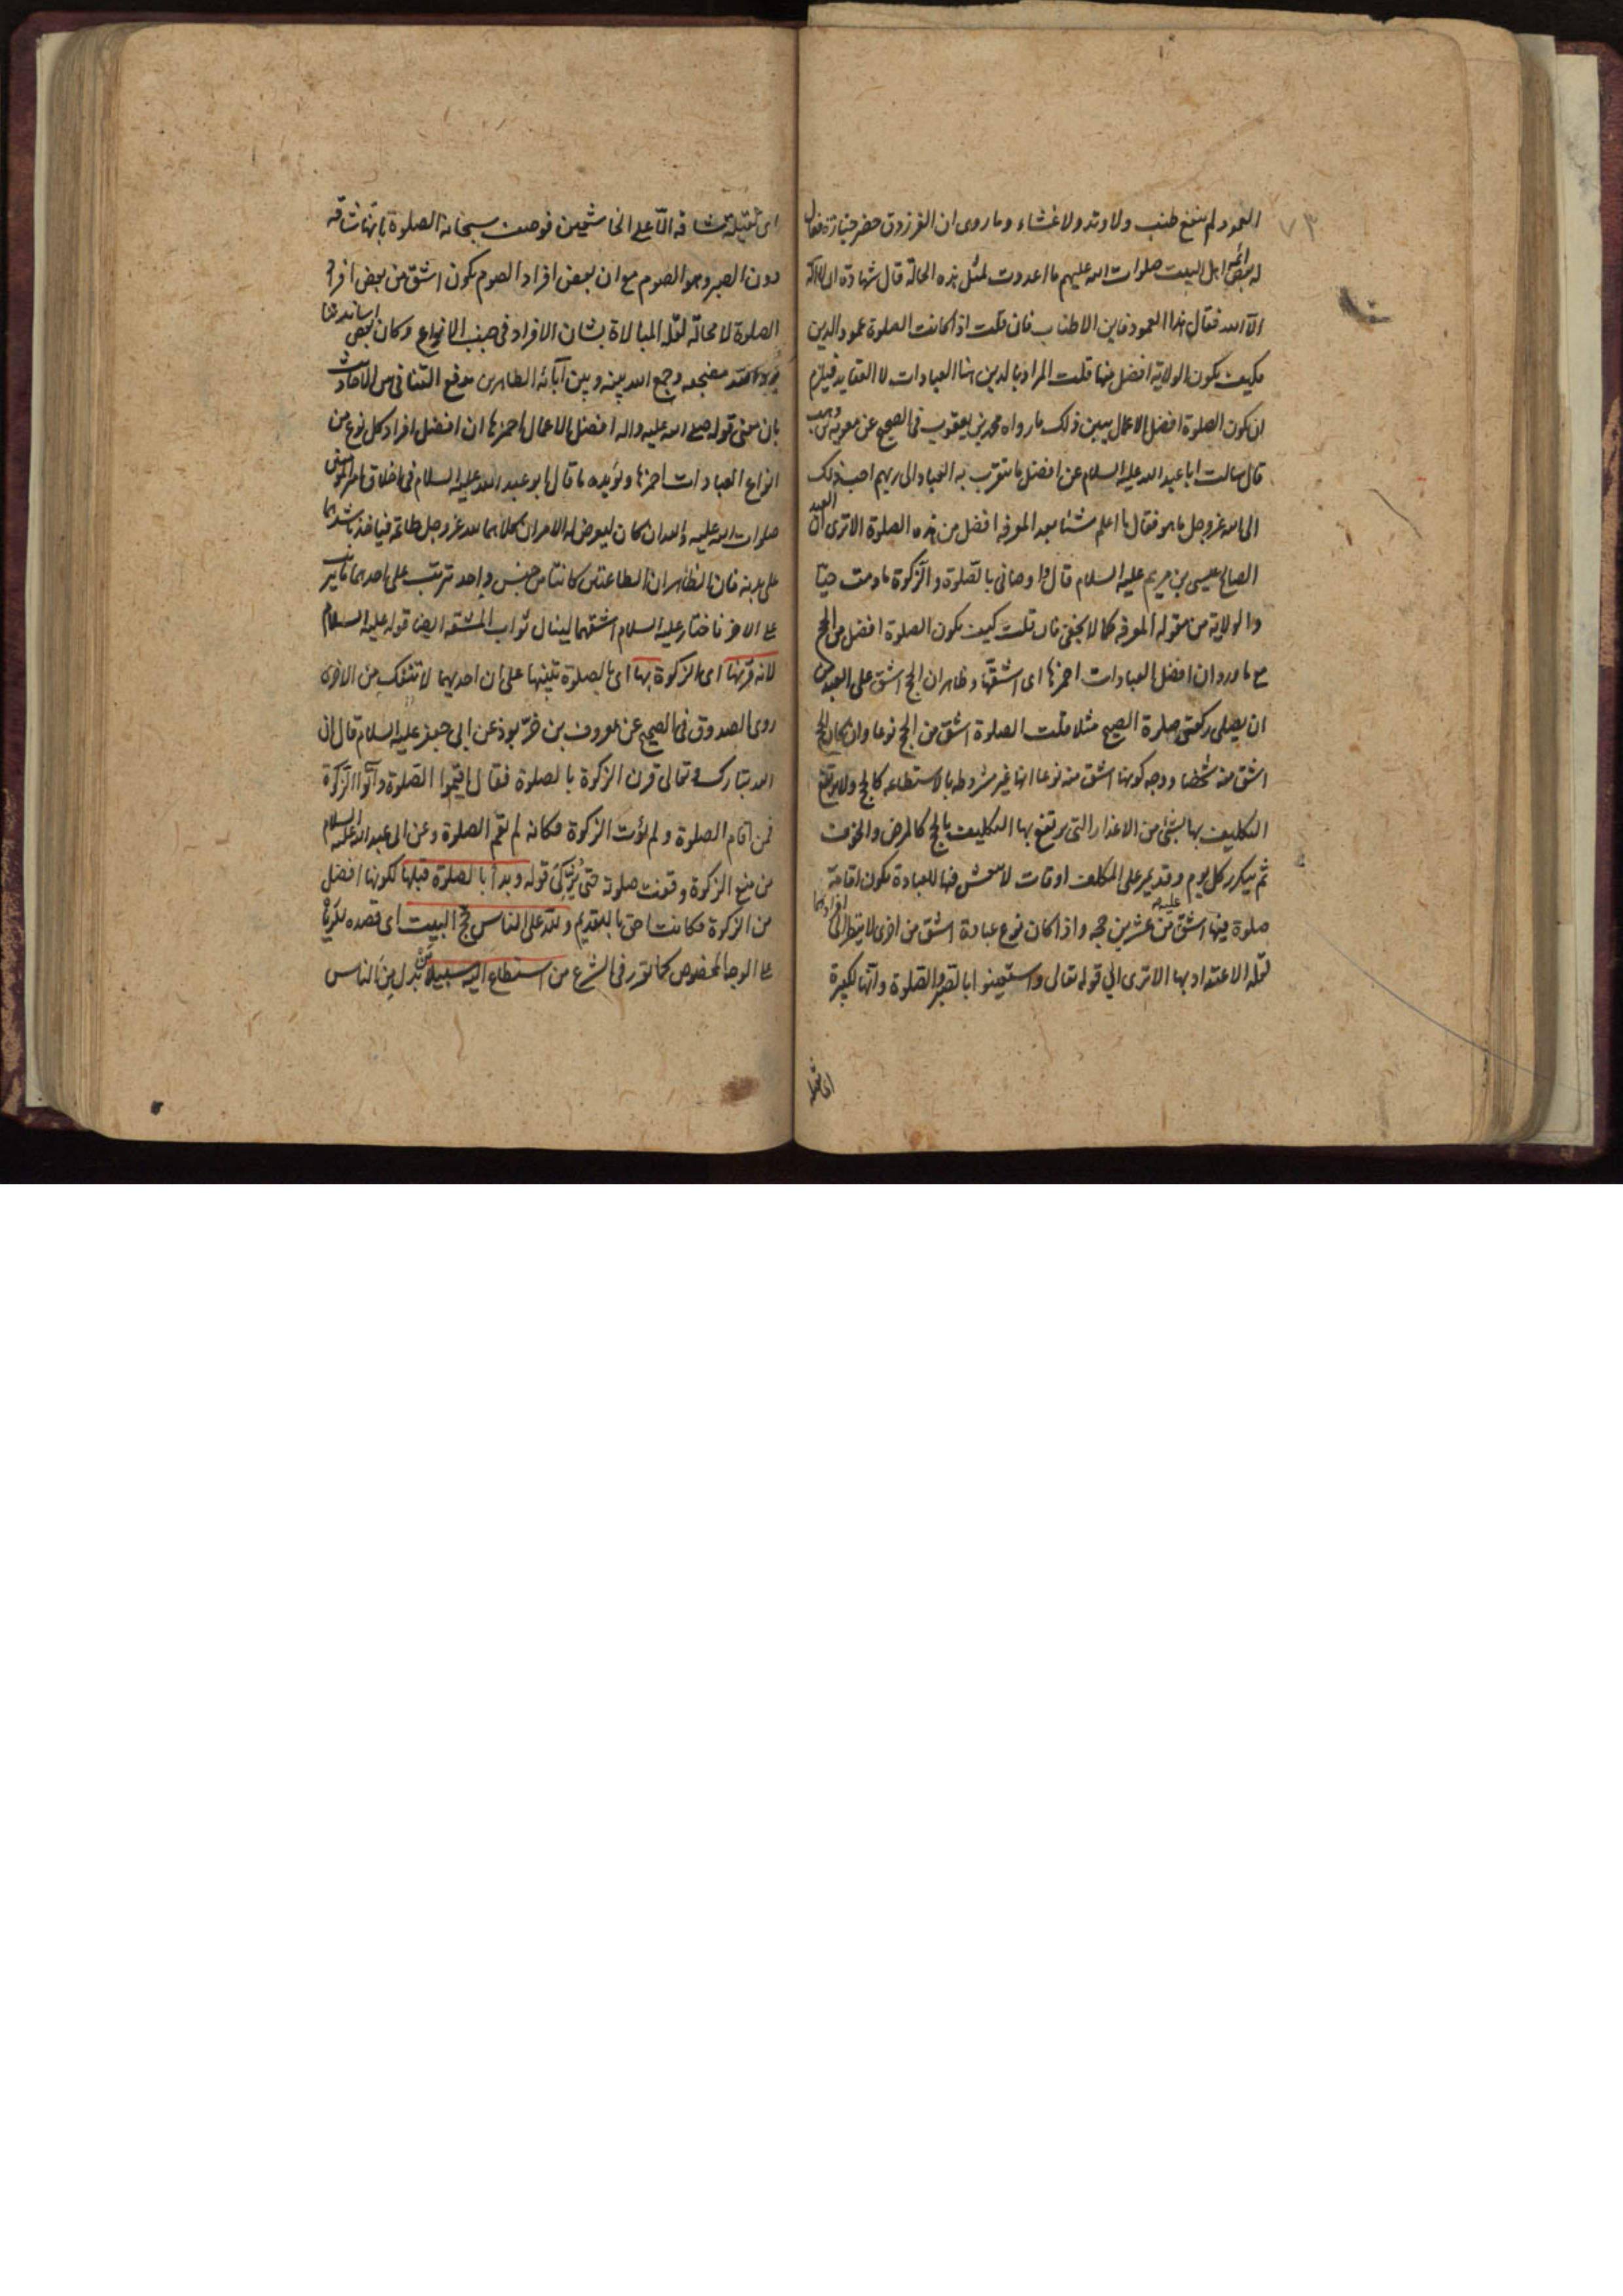 ٧٣
العمود لم ينفع طنب ولا وتد ولا غشاء وما روى ان الفرزدق حضر جنازة فقال
له بعض ائمة اهل البيت صلوات الله عليهم ما اعددت لمثل هذه الحالة قال شهادة ان لا اله
الا الله فقال هذا العمود فاين الاطناب فان قلت اذا كانت الصلوة عمود الدين
فكيف يكون الولاية افضل منها قلت المراد بالدين هنا العبادات لا العقايد فيلزم
ان يكون الصلوة افضل الاعمال يبين ذلك ما رواه محمد بن يعقوب فى الصحيح عن معوية بن وهب
قال سالت ابا عبد الله عليه السلام عن افضل ما يتقرب به العباد الى ربهم احب ذلك
الى الله عز وجل ما هو فقال ما اعلم شئا بعد المعرفه افضل من هذه الصلوة الا ترى ان العبد
الصالح عيسى بن مريم عليه السلام قال وا وصانى بالصّلوة والزّكوة ما دمت حيّا
والولاية من مقولة المعرفه كما لا يخفى فان قلت كيف يكون الصلوة افضل من الحج
مع ما ورد ان افضل العبادات احمزها اى اشقّها وظاهر ان الحج اشق على العبد من
ان يصلى ركعتى صلوة الصبح مثلا قلت الصلوة اشق من الحج نوعا وان كان الحج
اشق منه شخصا ووجه كونها اشق منه نوعا انها غير مشروطه بالاستطاعه كالحج ولا يرتفع
التكليف بها بشئ من الاعذار التى يرتفع بها التكليف بالحج كالمرض والخوف
ثم يتكرر كل يوم وقد يمر على المكلف اوقات لا فيها للعبادة فيكون اقامة
صلوة فيها اشق عليه من عشرين حجه واذا كان نوع عبادة اشق من اخرى لا ينظر الى افرادهما
لقله الاعتداد بها الا ترى الى قوله تعالى واستعينوا بالصّبر والصّلوة وانّها لكبيرة
اى ثقيلة
اى ثقيلة شاقه الّا على الخاشعين فوصف سبحانه الصلوة بانها شاقه
دون الصبر وهو الصوم مع ان بعض افراد الصوم يكون اشق من بعض افراد
الصلوة لا محالة لقلة المبالاة بشان الافراد فى جنب الانواع وكان بعض اساتيدنا
مضجعه وجمع الله بينه وبين آبائه الطاهرين يدفع التنافى من الاحاديث
بان معنى قوله صلى الله عليه واله افضل الاعمال احمزها ان افضل افراد كل نوع من
انواع العبادات احمزها ويؤيده ما قال ابو عبد الله عليه السلام فى اخلاق امير المؤمنين
صلوات الله عليه والله ان كان ليعرض له الامران كلاهما لله عز وجل طاعة فياخذ باشدهما
على بدنه فان الظاهر ان الطاعتين كانتا من جنس واحد مترتب على احدهما ما يترتب
على الاخر فاختار عليه السلام اشقهما لينال ثواب المشقه ايضا قوله عليه السلام
لانه قرنها اى الزكوة بها اى بالصلوة تنبيها على ان احديهما لا تنفك من الاخرى
روى الصدوق فى الصحيح عن معروف بن خرّبوذ عن ابى جعفر عليه السلام قال ان
الله تبارك وتعالى قرن الزكوة بالصلوة فقال اقيموا الصّلوة وآتوا الزّكوة
فمن اقام الصلوة ولم يؤت الزكوة فكانه لم يقم الصلوة وعن ابى عبد الله عليه السلام
من منع الزكوة وقفت صلوته حتى يُزكّى قوله وبدأ بالصلوة قبلها لكونها افضل
من الزكوة فكانت احق بالتقديم ولله على الناس حج البيت اى قصده
على الوجه المخصوص كما تقرر فى الشرع من استطاع اليه سبيلا مَن بدل مِن الناس